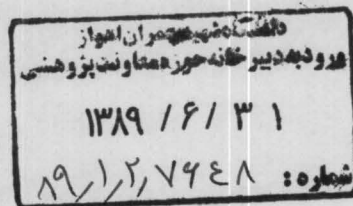 دانشگاه شهید چمران اهواز
ورود به دبیرخانه حوزه معاونت پژوهشی
۱۳۸۹ / ۶ / ۳۱
شماره: ۸۹/۱/۲/۷۶۴۸